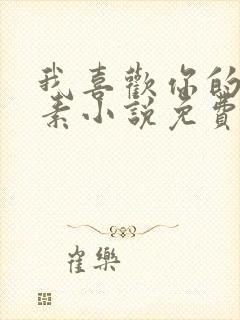 我喜歡你的
素小說免費
崔樂